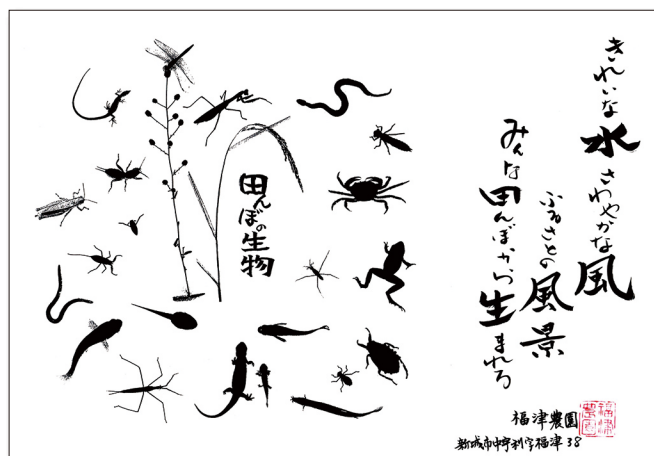 きれいな水さわやかな風
ふるさとの風景
みんな田んぼから生まれる
田んぼの
生物
福津農園
新城市中宇利字福津38
福津
農園